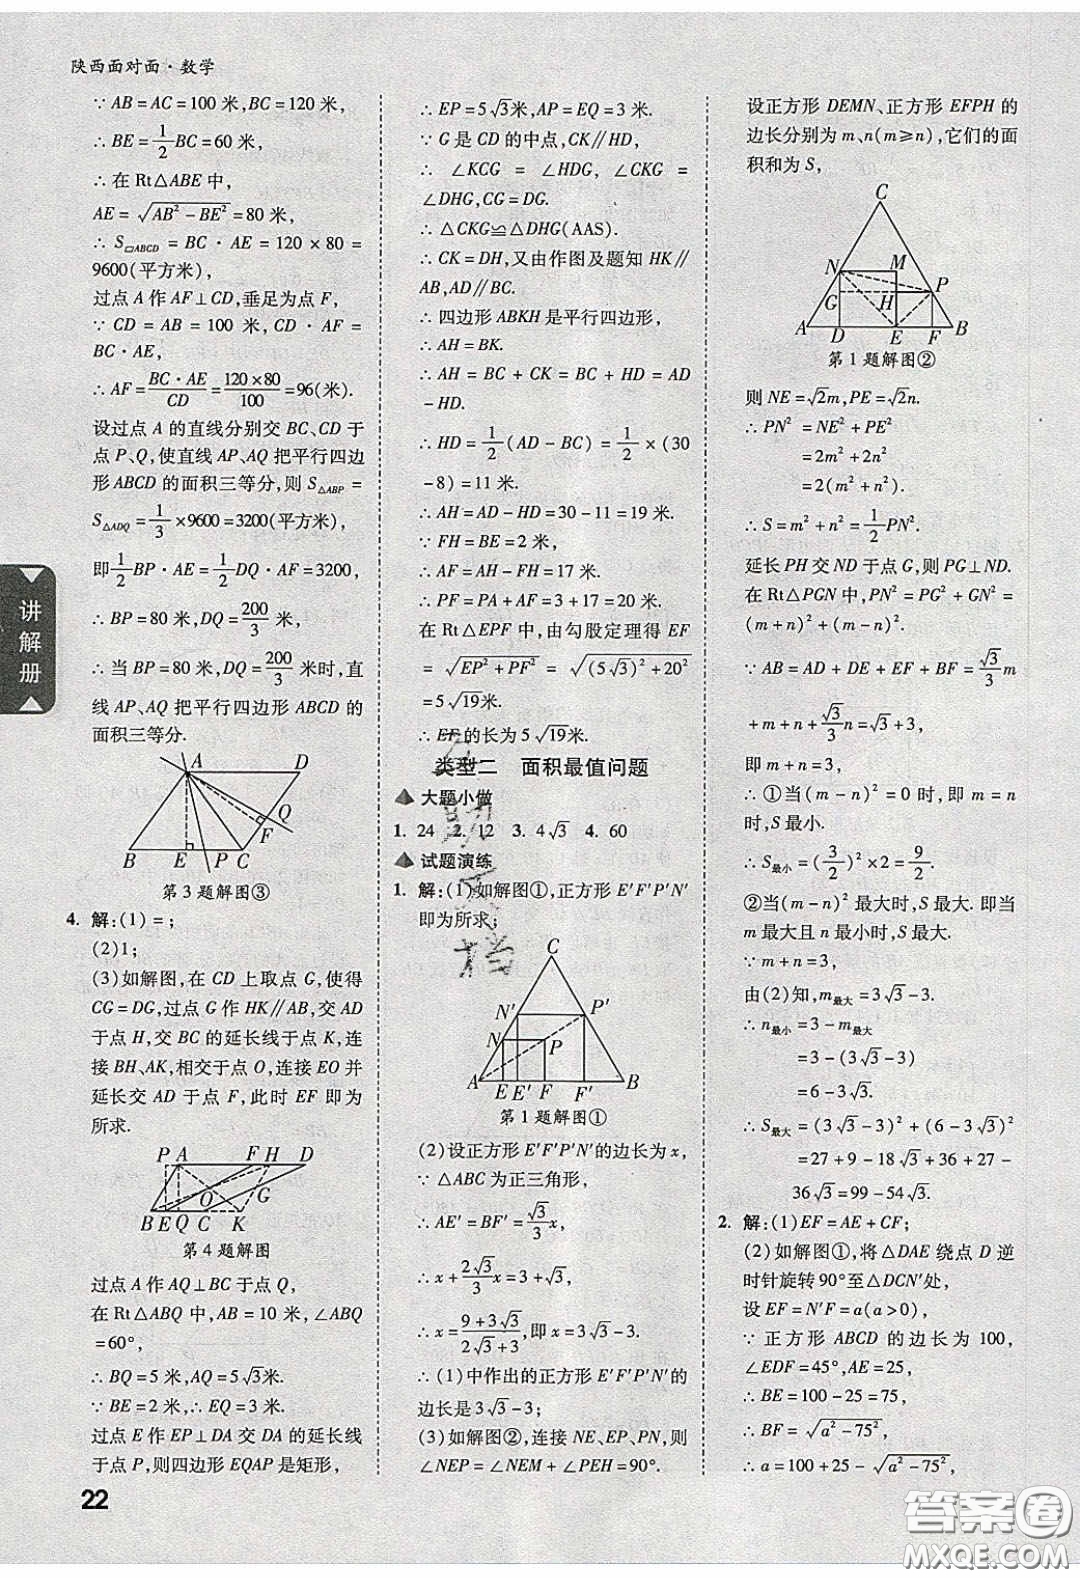 陕西面对面·数学
∵AB=AC=100米,BC=120米,
∴BE=1/2BC=60米,
∴在Rt△ABE中,
AE=√(AB²-BE²)=80米,
∴S▱ABCD=BC·AE=120×80=
9600(平方米),
过点A作AF⊥CD,垂足为点F,
∵CD=AB=100米,CD·AF=
BC·AE,
∴AF=BC·AE/CD=120×80/100=96(米).
设过点A的直线分别交BC、CD于
点P、Q,使直线AP、AQ把平行四边
形ABCD的面积三等分,则S△ABP=
S△ADQ=1/3×9600=3200(平方米),
即1/2BP·AE=1/2DQ·AF=3200,
∴BP=80米,DQ=200/3米,
∴当BP=80米,DQ=200/3米时,直
线AP、AQ把平行四边形ABCD的
面积三等分.
A D
Q
F
B E P C
第3题解图③
4. 解:(1)=;
(2)1;
(3)如解图,在CD上取点G,使得
CG=DG,过点G作HK∥AB,交AD
于点H,交BC的延长线于点K,连接
BH、AK,相交于点O,连接EO并
延长交AD于点F,此时EF即为
所求.
P A F H D
O G
B E Q C K
第4题解图
过点A作AQ⊥BC于点Q,
在Rt△ABQ中,AB=10米,∠ABQ
=60°,
∴BQ=5米,AQ=5√3米.
∵BE=2米,∴EQ=3米.
过点E作EP⊥DA交DA的延长线
于点P,则四边形EQAP是矩形,
22
讲解册
∴EP=5√3米,AP=EQ=3米.
∵G是CD的中点,CK∥HD,
∴∠KCG=∠HDG,∠CKG=
∠DHG,CG=DG.
∴△CKG≌△DHG(AAS).
∴CK=DH,又由作图及题知HK∥
AB,AD∥BC.
∴四边形ABKH是平行四边形,
∴AH=BK.
∴AH=BC+CK=BC+HD=AD
-HD.
∴HD=1/2(AD-BC)=1/2×(30
-8)=11米.
∴AH=AD-HD=30-11=19米.
∵FH=BE=2米,
∴AF=AH-FH=17米.
∴PF=PA+AF=3+17=20米.
在Rt△EPF中,由勾股定理得EF
=√(EP²+PF²)=√((5√3)²+20²)
=5√19米.
∴EF的长为5√19米.
类型二 面积最值问题
大题小做
1. 24 2. 12 3. 4√3 4. 60
试题演练
1. 解:(1)如解图①,正方形E′F′P′N′
即为所求;
C
N′ P′
N P
A E E′ F F′ B
第1题解图①
(2)设正方形E′F′P′N′的边长为x,
∵△ABC为正三角形,
∴AE′=BF′=√3/3x,
∴x+2√3/3x=3+√3,
∴x=(9+3√3)/(2√3+3),即x=3√3-3.
∴(1)中作出的正方形E′F′P′N′的
边长是3√3-3;
(3)如解图②,连接NE、EP、PN,则
∠NEP=∠NEM+∠PEH=90°.
设正方形DEMN、正方形EFPH的
边长分别为m、n(m≥n),它们的面
积和为S,
C
N M
P
G H
A D E F B
第1题解图②
则NE=√2m,PE=√2n.
∴PN²=NE²+PE²
=2m²+2n²
=2(m²+n²).
∴S=m²+n²=1/2PN².
延长PH交ND于点G,则PG⊥ND.
在Rt△PGN中,PN²=PG²+GN²=
(m+n)²+(m-n)².
∵AB=AD+DE+EF+BF=√3/3m
+m+n+√3/3n=√3+3,
即m+n=3.
∴①当(m-n)²=0时,即m=n
时,S最小.
∴S最小=(3/2)²×2=9/2.
②当(m-n)²最大时,S最大.即当
m最大且n最小时,S最大.
∵m+n=3,
由(2)知,m最大=3√3-3.
∴n最小=3-m最大
=3-(3√3-3)
=6-3√3.
∴S最大=(3√3-3)²+(6-3√3)²
=27+9-18√3+36+27-
36√3=99-54√3.
2. 解:(1)EF=AE+CF;
(2)如解图①,将△DAE绕点D逆
时针旋转90°至△DCN′处,
设EF=N′F=a(a>0),
∵正方形ABCD的边长为100,
∠EDF=45°,AE=25,
∴BE=100-25=75,
∴BF=√(a²-75²),
∴a=100+25-√(a²-75²),
答案圈
MXQE.COM